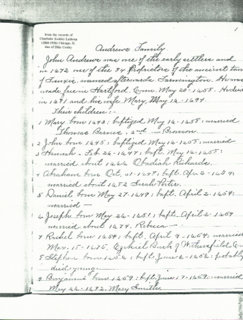 From the records of
Andrews Family
John Andrews was one of the early settlers and
in 1672 one of the 84 Proprietors of the ancient town
of Tunxis, named afterwards Farmington. He was
made free in Hartford, Conn. May 20, 1658. He died
in 1681 and his wife Mary, May 1694
Their children:
1 Mary born 1643; baptized May 14, 1655; married
Thomas Barnes, 2nd - Bronson
2 John born 1645; baptized May 14, 1655; married
3 Hannah - Feb 26-1647; bapt. May 14-1655;
married about 1666 Obadiah Richards
4 Abraham born Oct. 31-1648; bapt. Apr. 2-1654;
married about 1672 Sarah Porter.
5 Daniel born May 27-1649; bapt. April 2-1654;
married -
6 Joseph born May 26-1651; bapt. April 2-1654
married about 1677, Rebecca -
7 Rachel born 1654; bapt. April 9-1654; married
Ezekiel Buck of Wethersfield,
8 Stephen born 1656; bapt. June 2-1656; probably
died young
9 Benjamin born 1659; bapt. June 1659; married
May 26-1682, Mary Smith